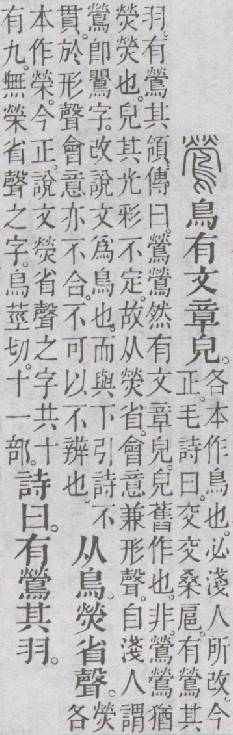 鶯鳥有文章皃。
各本作鳥也。必淺人所改。今
正。毛詩曰。交交桑扈。有鶯其
羽。有鶯其領。傳曰。鶯鶯然有文章皃。皃舊作也。非。鶯鶯猶
熒熒也。皃其光彩不定。故从熒省。會意兼形聲。自淺人謂
鶯卽鸎字。改說文爲鳥也。而與下引詩不
貫。於形聲會意亦不合。不可以不辨也。
从鳥。熒省聲。
熒
各
本作榮。今正。說文熒省聲之字共十
有九。無榮省聲之字。鳥莖切。十一部。
詩曰。有鶯其羽。